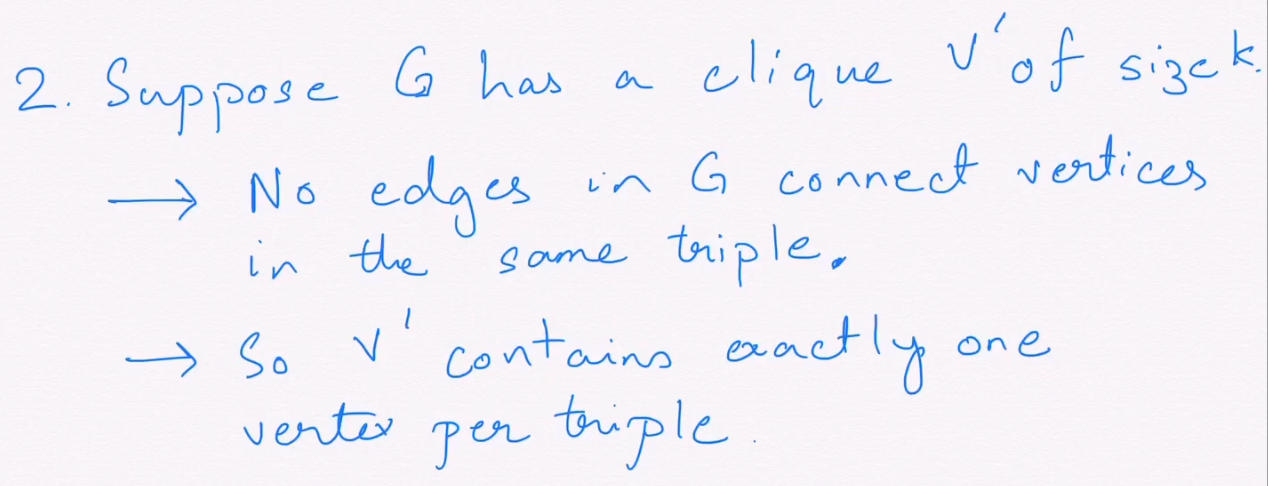 2. Suppose G has a clique V' of size k.
→ No edges in G connect vertices
in the same triple.
→ So V' contains exactly one
vertex per triple.